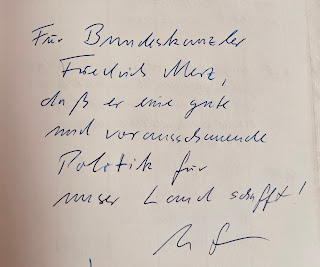 Für Bundeskanzler
Friedrich Merz,
daß er eine gute
und vorausschauende
Politik für
unser Land schafft!